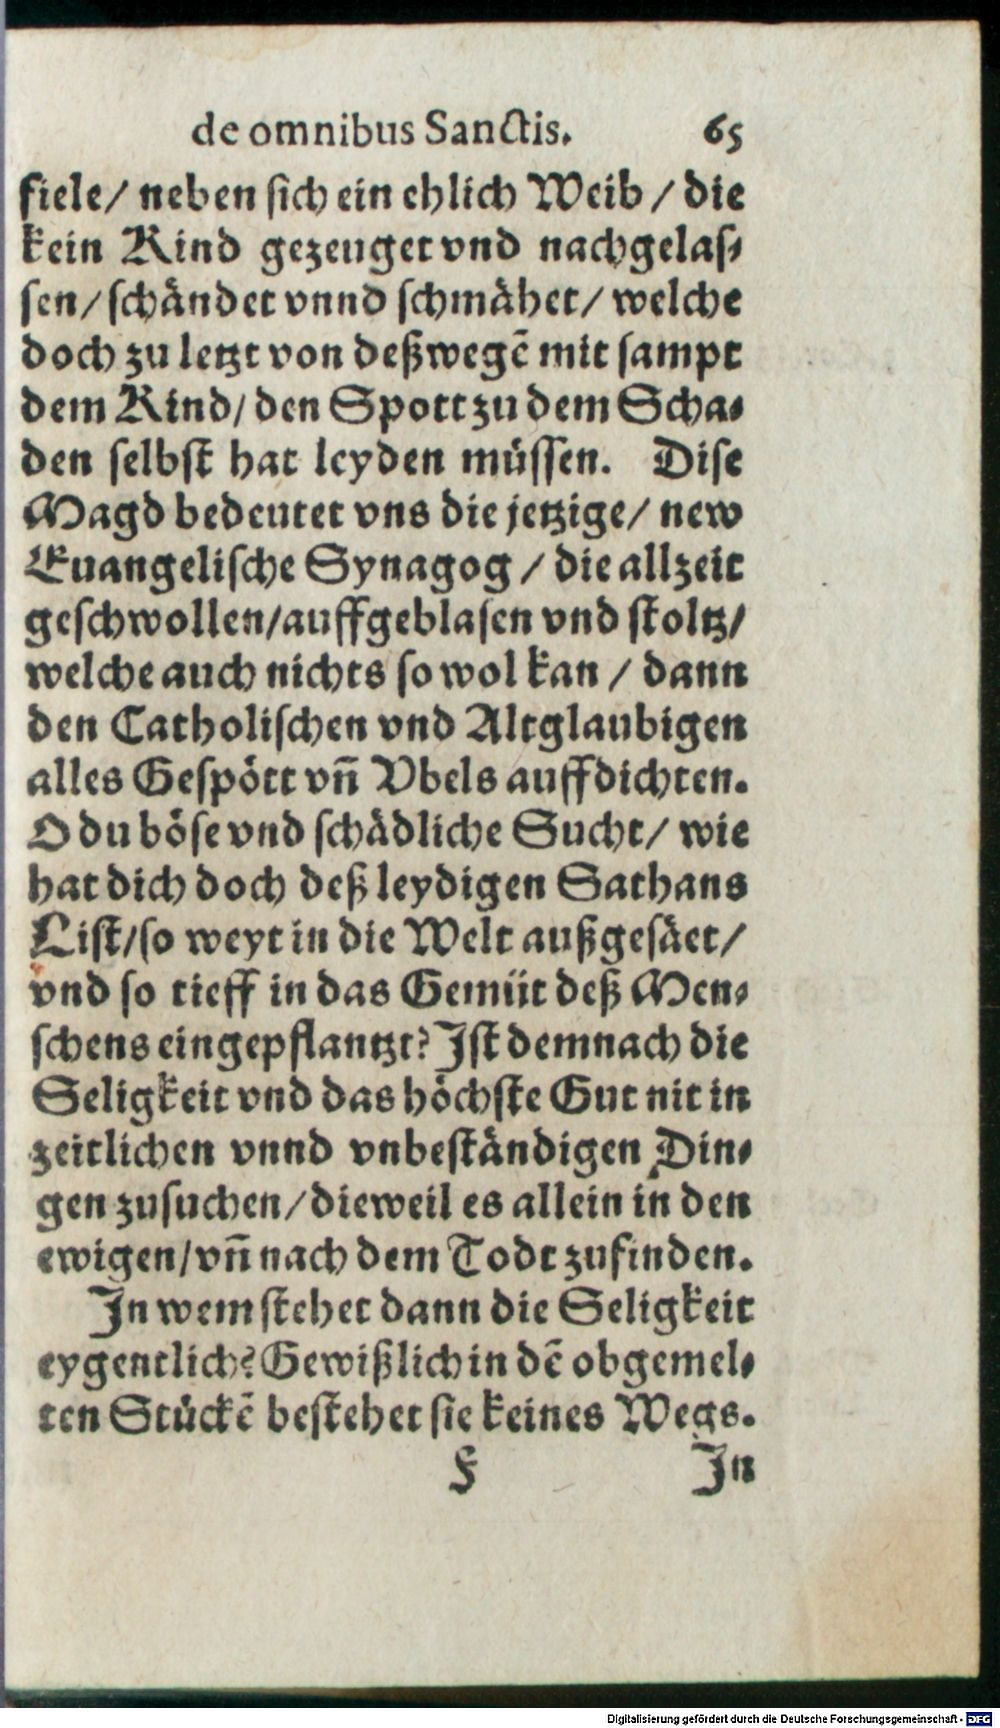 de omnibus Sanctis. 65
fiele/ neben sich ein ehlich Weib / die
kein Kind gezeuget vnd nachgelas-
sen/ schändet vnnd schmähet/ welche
doch zu letzt von deßwegē mit sampt
dem Kind/ den Spott zu dem Scha-
den selbst hat leyden müssen. Dise
Magd bedeutet vns die jetzige/ new
Euangelische Synagog / die allzeit
geschwollen/auffgeblasen vnd stoltz/
welche auch nichts so wol kan / dann
den Catholischen vnd Altglaubigen
alles Gespött vn̄ Vbels auffdichten.
O du böse vnd schädliche Sucht/ wie
hat dich doch deß leydigen Sathans
List/so weyt in die Welt außgesäet/
vnd so tieff in das Gemüt deß Men-
schens eingepflantzt? Ist demnach die
Seligkeit vnd das höchste Gut nit in
zeitlichen vnnd vnbeständigen Din-
gen zusuchen/dieweil es allein in den
ewigen/vn̄ nach dem Todt zufinden.
In wem stehet dann die Seligkeit
eygentlich? Gewißlich in dē obgemel-
ten Stückē bestehet sie keines Wegs.
F In
Digitalisierung gefördert durch die Deutsche Forschungsgemeinschaft - DFG